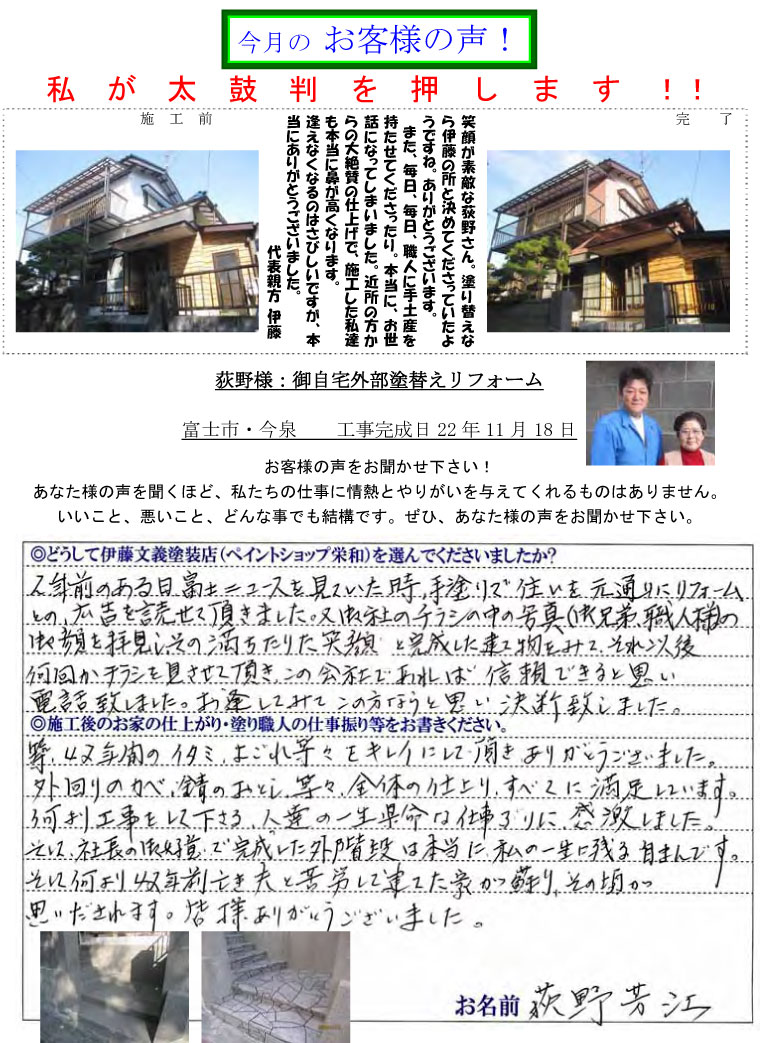 今月の お客様の声！
私が太鼓判を押します！！
施工前
完了
笑顔が素敵な荻野さん。塗り替えな
ら伊藤の所と決めてくださっていたよ
うですね。ありがとうございます。
また、毎日、毎日、職人に手土産を
持たせてくださったり。本当に、お世
話になってしまいました。近所の方か
らの大絶賛の仕上げで、施工した私達
も本当に鼻が高くなります。
逢えなくなるのはさびしいですが、本
当にありがとうございました。
代表親方 伊藤
荻野様：御自宅外部塗替えリフォーム
富士市・今泉　　工事完成日22年11月18日
お客様の声をお聞かせ下さい！
あなた様の声を聞くほど、私たちの仕事に情熱とやりがいを与えてくれるものはありません。
いいこと、悪いこと、どんな事でも結構です。ぜひ、あなた様の声をお聞かせ下さい。
◎どうして伊藤文義塗装店（ペイントショップ栄和）を選んでくださいましたか？
年前のある日富士ニュースを見ていた時、手塗りで住いを元通りにリフォーム
との、広告を読せて頂きました。又御社のチラシの中の写真（御兄弟、職人様）の
御顔を拝見しその満ちたりた笑顔と完成した建て物をみて、それ以後
何回かチラシを見させて頂き、この会社であれば信頼できると思い
電話致しました。お逢してみてこの方ならと思い決断致しました。
◎施工後のお家の仕上がり・塗り職人の仕事振り等をお書きください。
築、42年間のイタミ、よごれ等々をキレイにして頂きありがとうございました。
外回りのカベ、錆のおとし、等々、全体の仕上り、すべてに満足しています。
何より工事をして下さる人達の一生県命な仕事ぶりに、感激しました。
そして、社長の御好意で完成した外階段は本当に、私の一生に残る自まんです。
そして何より42年前亡き夫と苦労して建てた家が蘇り、その頃が
思いだされます。皆様ありがとうございました。
お名前 荻野芳江